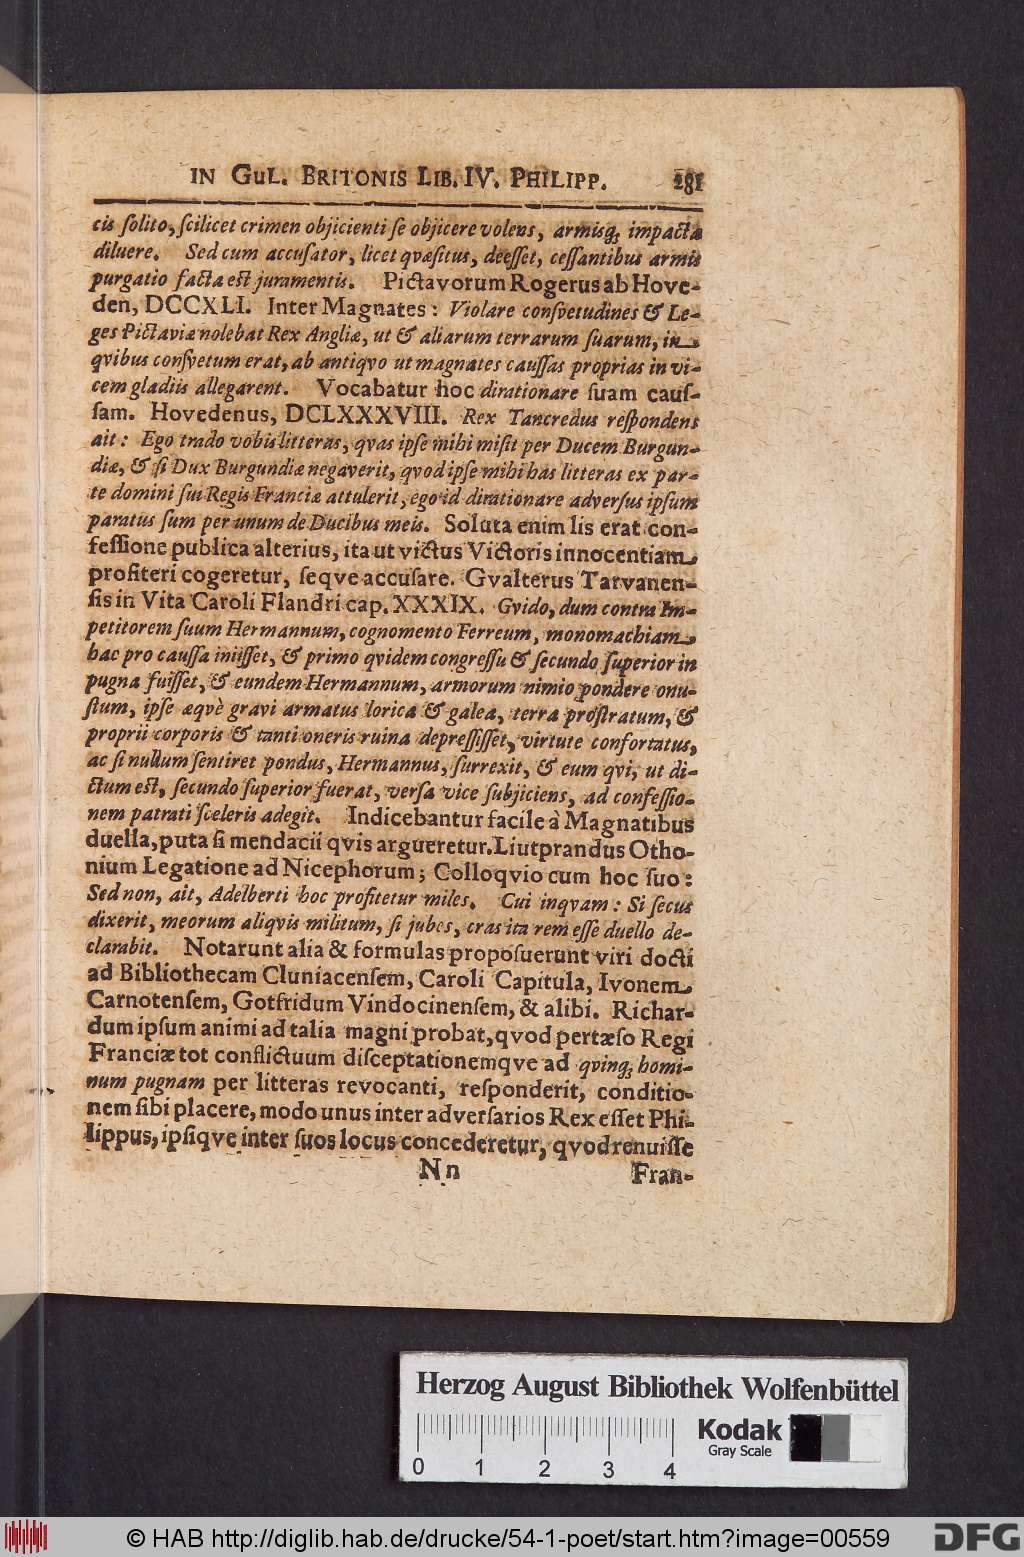 IN GuL. BRITONIS LIB. IV. PHILIPP. 281
cis solito, scilicet crimen objicienti se objicere volens, armisq; impacta
diluere. Sed cum accusator, licet qvæsitus, deesset, cessantibus armis
purgatio facta est juramentis. Pictavorum Rogerus ab Hove-
den, DCCXLI. Inter Magnates: Violare consvetudines & Le-
ges Pictaviæ nolebat Rex Angliæ, ut & aliarum terrarum suarum, in
qvibus consvetum erat, ab antiqvo ut magnates caussas proprias in vi-
cem gladiis allegarent. Vocabatur hoc dirationare suam caus-
sam. Hovedenus, DCLXXXVIII. Rex Tancredus respondens
ait: Ego trado vobis litteras, qvas ipse mihi misit per Ducem Burgun-
diæ, & si Dux Burgundiæ negaverit, qvod ipse mihi has litteras ex par-
te domini sui Regis Franciæ attulerit, ego id dirationare adversus ipsum
paratus sum per unum de Ducibus meis. Soluta enim lis erat con-
fessione publica alterius, ita ut victus Victoris innocentiam
profiteri cogeretur, seqve accusare. Gvalterus Tarvanen-
sis in Vita Caroli Flandri cap. XXXIX. Gvido, dum contra Im-
petitorem suum Hermannum, cognomento Ferreum, monomachiam
hac pro caussa iniisset, & primo qvidem congressu & secundo superior in
pugna fuisset, & eundem Hermannum, armorum nimio pondere onu-
stum, ipse æqvè gravi armatus lorica & galea, terra prostratum, &
proprii corporis & tanti oneris ruina depressisset, virtute confortatus,
ac si nullum sentiret pondus, Hermannus, surrexit, & eum qvi, ut di-
ctum est, secundo superior fuerat, versa vice subjiciens, ad confessio-
nem patrati sceleris adegit. Indicebantur facile à Magnatibus
duella, puta si mendacii qvis argueretur. Liutprandus Otho-
nium Legatione ad Nicephorum; Colloqvio cum hoc suo:
Sed non, ait, Adelberti hoc profitetur miles. Cui inqvam: Si secus
dixerit, meorum aliqvis militum, si jubes, cras ita rem esse duello de-
clarabit. Notarunt alia & formulas proposuerunt viri docti
ad Bibliothecam Cluniacensem, Caroli Capitula, Ivonem
Carnotensem, Gotfridum Vindocinensem, & alibi. Richar-
dum ipsum animi ad talia magni probat, qvod pertæso Regi
Franciæ tot conflictuum disceptationemqve ad qvinq; homi-
num pugnam per litteras revocanti, responderit, conditio-
nem sibi placere, modo unus inter adversarios Rex esset Phi-
lippus, ipsiqve inter suos locus concederetur, qvod renuisse
Nn Fran-
Herzog August Bibliothek Wolfenbüttel
Kodak
Gray Scale
0 1 2 3 4
© HAB http://diglib.hab.de/drucke/54-1-poet/start.htm?image=00559
DFG